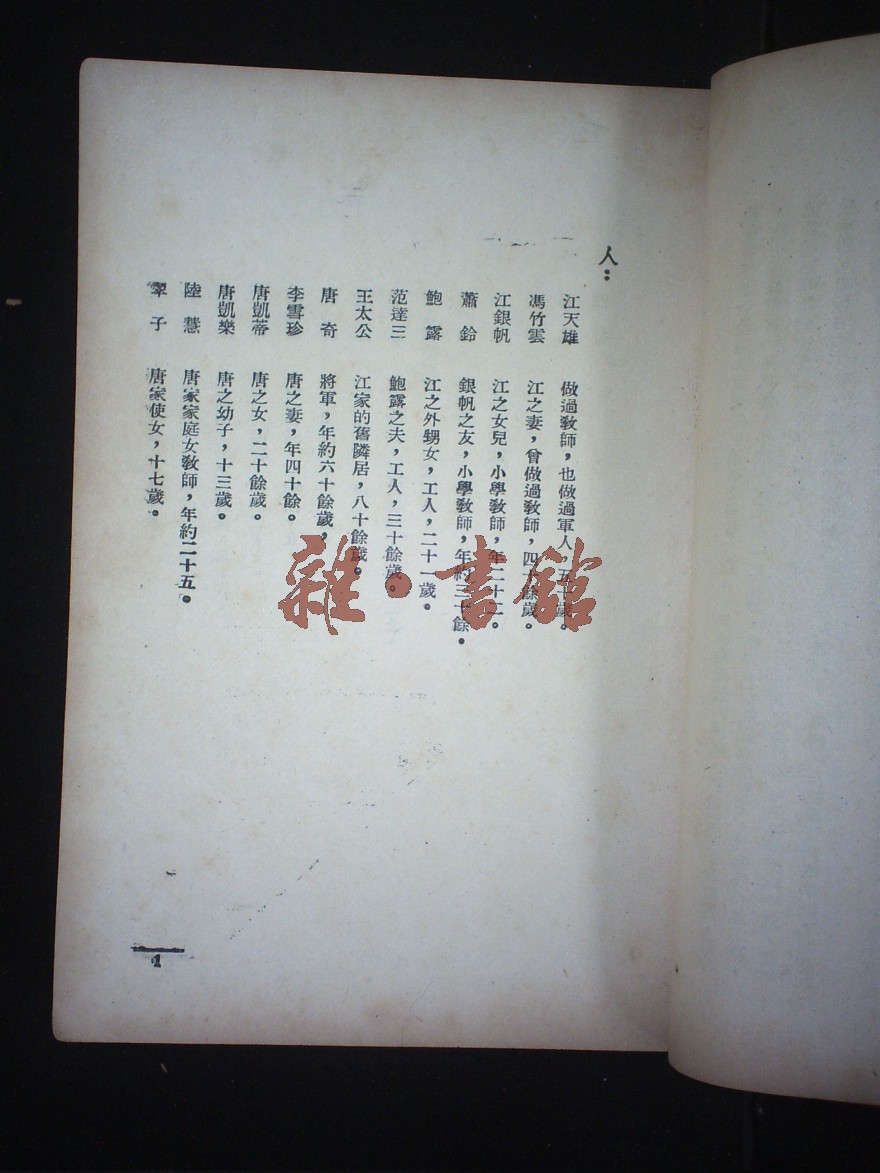 人：
江天雄　做過教師，也做過軍人，五十歲。
馮竹雲　江之妻，曾做過教師，四十餘歲。
江銀帆　江之女兒，小學教師，年二十二。
蕭鈴　銀帆之友，小學教師，年約三十餘。
鮑露　江之外甥女，工人，二十一歲。
范達三　鮑露之夫，工人，三十餘歲。
王太公　江家的舊隣居，八十餘歲。
唐奇　將軍，年約六十餘歲，
李雪珍　唐之妻，年四十餘。
唐凱蒂　唐之女，二十餘歲。
唐凱樂　唐之幼子，十三歲。
陸慧　唐家家庭女教師，年約二十五。
翠子　唐家使女，十七歲。
1
雜·書館